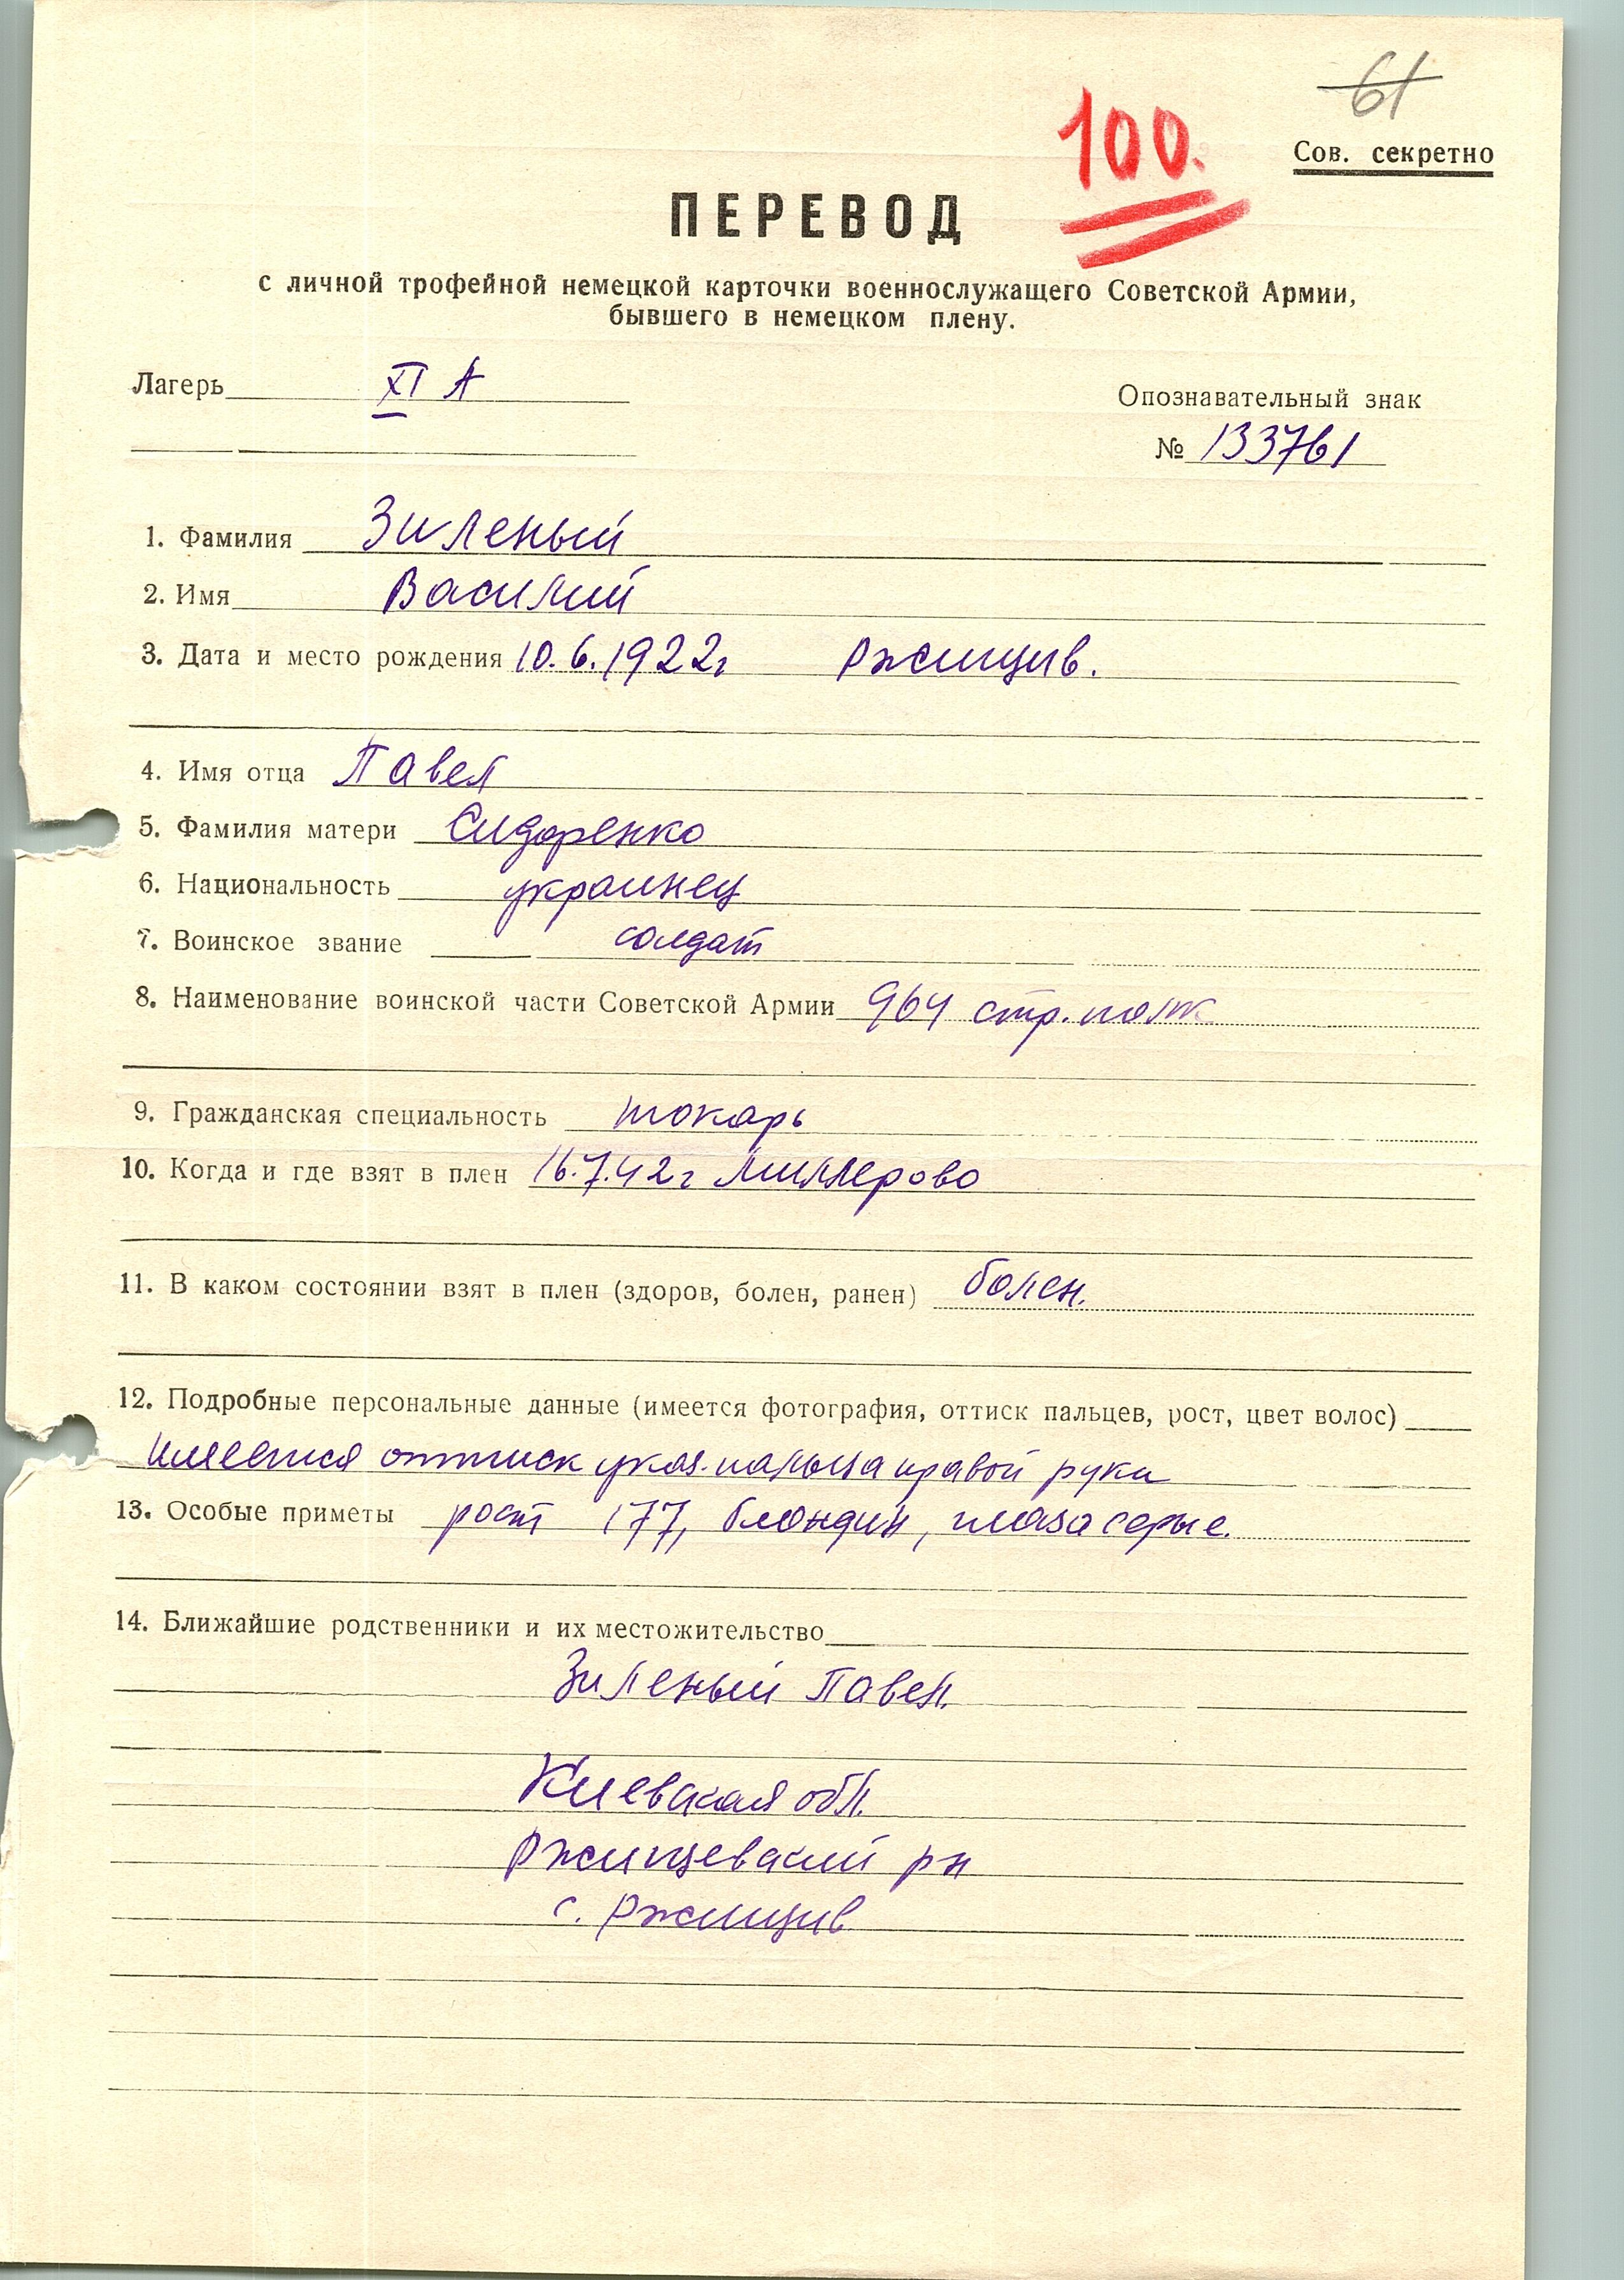 61
100.
Сов. секретно
ПЕРЕВОД
с личной трофейной немецкой карточки военнослужащего Советской Армии,
бывшего в немецком плену.
Лагерь XI А
Опознавательный знак
№ 133761
1. Фамилия Зиленый
2. Имя Василий
3. Дата и место рождения 10.6.1922г Ржищив.
4. Имя отца Павел
5. Фамилия матери Сидоренко
6. Национальность украинец
7. Воинское звание солдат
8. Наименование воинской части Советской Армии 964 стр. полк
9. Гражданская специальность токарь
10. Когда и где взят в плен 16.7.42г Миллерово
11. В каком состоянии взят в плен (здоров, болен, ранен) болен.
12. Подробные персональные данные (имеется фотография, оттиск пальцев, рост, цвет волос)
имеется оттиск указ. пальца правой руки
13. Особые приметы рост 177, блондин, глаза серые.
14. Ближайшие родственники и их местожительство
Зиленый Павел.
Киевская обл.
Ржищевский рн
с. Ржищив